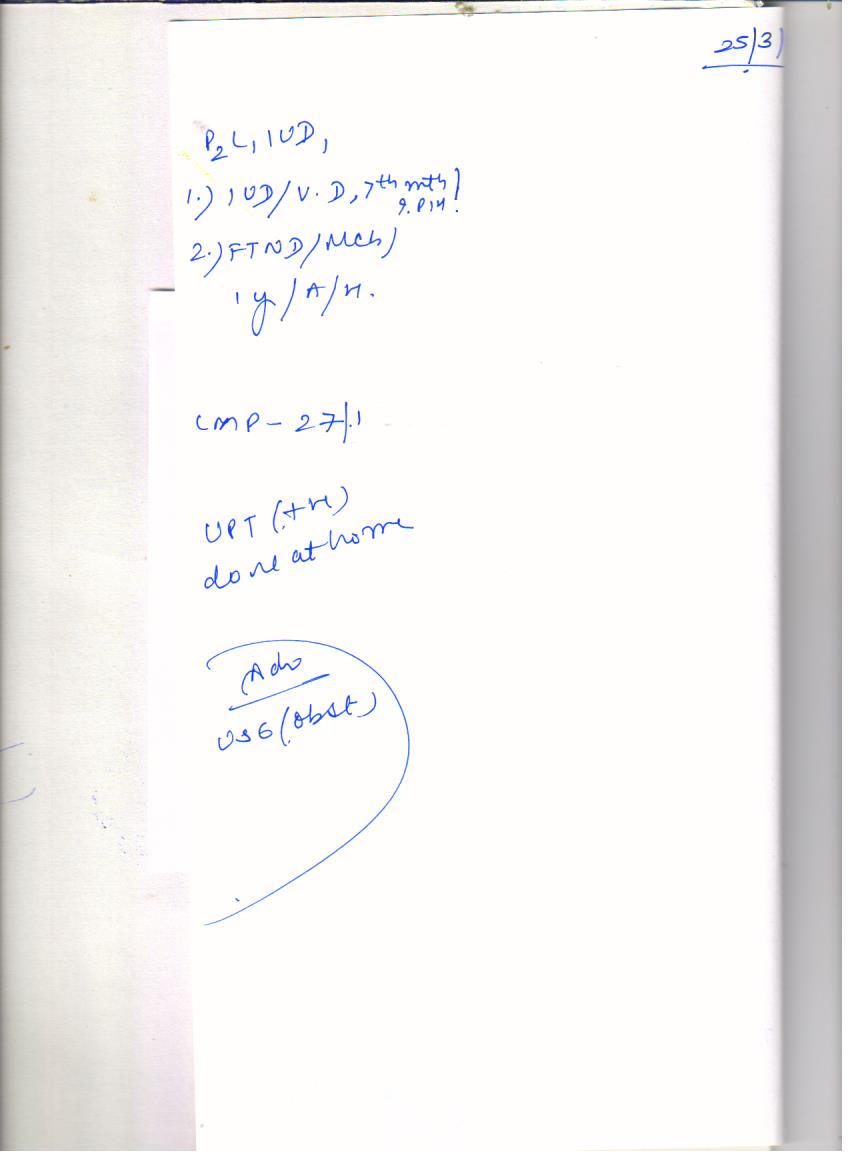 25/3/
P2L1IUD1
1.) IUD/V.D, 7th mth/
?.PIH.
2.) FTND/Mch/
1y/A/H.
LMP - 27/1
UPT (+ve)
done at home
Adv
USG (obst)